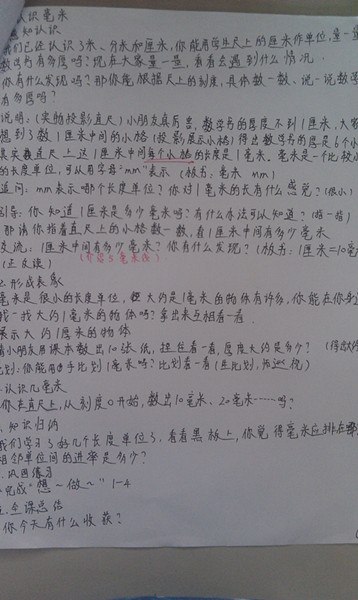 认识毫米
知认识
们已经认识了米、分米和厘米,你能用学生尺上的厘米作单位,量一量
数学书有多厚吗?现在大家量一量,看看会遇到什么情况。
你有什么发现吗?那你能根据尺上的刻度,具体数一数、说一说数学
有多厚吗?
说明:(实物投影直尺)小朋友真厉害,数学书的厚度不到1厘米,大家
想到了数1厘米中间的小格(投影展示小格)得出数学书的厚是6小格
其实直尺上这1厘米中间每个小格的长度是1毫米。毫米是一个比较小
的长度单位,可以用字母“mm”表示 (板书:毫米 mm)
追问:mm表示哪个长度单位?你对1毫米的长有什么感觉?(很小)
引导:你知道1厘米是多少毫米吗?有什么办法可以知道?(指一指)
那请你指着直尺上的小格数一数,看1厘米中间有多少毫米
交流:1厘米中间有多少毫米?你有什么发现?(板书:1厘米=10毫米
(正反读)
形成表象
毫米是很小的长度单位,大约是1毫米的物体有许多,你能在你
找一找大约1毫米的物体吗?拿出来互相看一看.
展示大约1厘米的物体
小朋友用课本数出10张纸,捏住看一看,厚度大约是多少?
比划:你能用手比划1毫米吗?比划看一看(生比划,师巡视)
认识几毫米
你在直尺上,从刻度0开始,数出10毫米、20毫米……吗?
知识归纳
我们学习了好几个长度单位了,看看黑板上,你觉得毫米应排在哪
相邻单位间的进率是多少?
巩固练习
完成“想~做~”1-4
全课总结
你今天有什么收获?